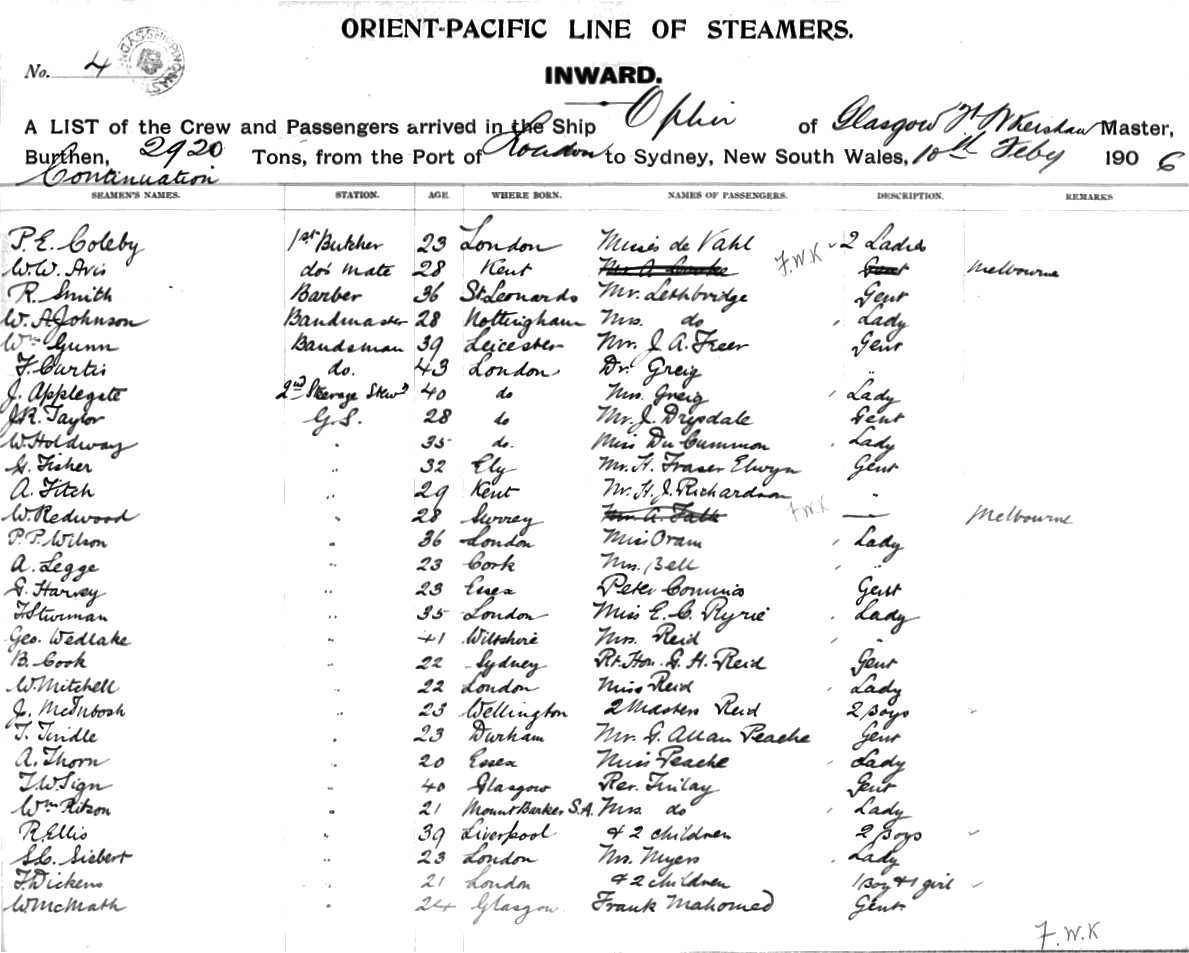 ORIENT-PACIFIC LINE OF STEAMERS.
No. 4
INWARD.
A LIST of the Crew and Passengers arrived in the Ship Ophir of Glasgow F. W Kershaw Master,
Burthen, 2920 Tons, from the Port of London to Sydney, New South Wales, 10th Feby 1906
Continuation
SEAMEN'S NAMES. STATION. AGE. WHERE BORN. NAMES OF PASSENGERS. DESCRIPTION. REMARKS
P. E. Coleby 1st Butcher 23 London Misses de Vahl 2 Ladies
W. W. Avis do's mate 28 Kent F.W.K Gent Melbourne
R. Smith Barber 36 St Leonards Mr. Lethbridge Gent
W. A Johnson Bandmaster 28 Nottingham Mrs. do Lady
Wm Gunn Bandsman 39 Leicester Mr. J. A. Freer Gent
F. Curtis do. 43 London Dr. Greig "
J. Applegate 2nd Steerage Stewd 40 do Mrs. Greig Lady
J. R. Taylor G.S. 28 do Mr. J. Drysdale Gent
W Holdway " 35 do. Miss Du Cummon Lady
G. Fisher " 32 Ely Mr. H. Fraser Elwyn Gent
A. Fitch " 29 Kent Mr. H. J. Richardson "
W. Redwood " 28 Surrey Mr. A. Falk F.W.K — Melbourne
P. P. Wilson " 36 London Miss Oram Lady
A. Legge " 23 Cork Mrs. Bell "
G. Harvey " 23 Essex Peter Cominos Gent
F Sturman " 35 London Miss E. C. Ryrie Lady
Geo. Wedlake " 41 Wiltshire Mrs. Reid "
B. Cook " 22 Sydney Rt. Hon. G. H. Reid Gent
W. Mitchell " 22 London Miss Reid Lady
J. McIntosh " 23 Wellington 2 Masters Reid 2 Boys
T. Tindle " 23 Durham Mr. G. Allan Peache Gent
A. Thorn " 20 Essex Miss Peache Lady
T. W Sign " 40 Glasgow Rev. Finlay Gent
Wm Ritson " 21 Mount Barker S.A. Mrs. do Lady
R Ellis " 39 Liverpool & 2 children 2 Boys
S. C. Siebert " 23 London Mrs. Myers Lady
F. Dickens " 21 London & 2 children 1 Boy & 1 girl
W McMath " 24 Glasgow. Frank Mahomed Gent
F.W.K